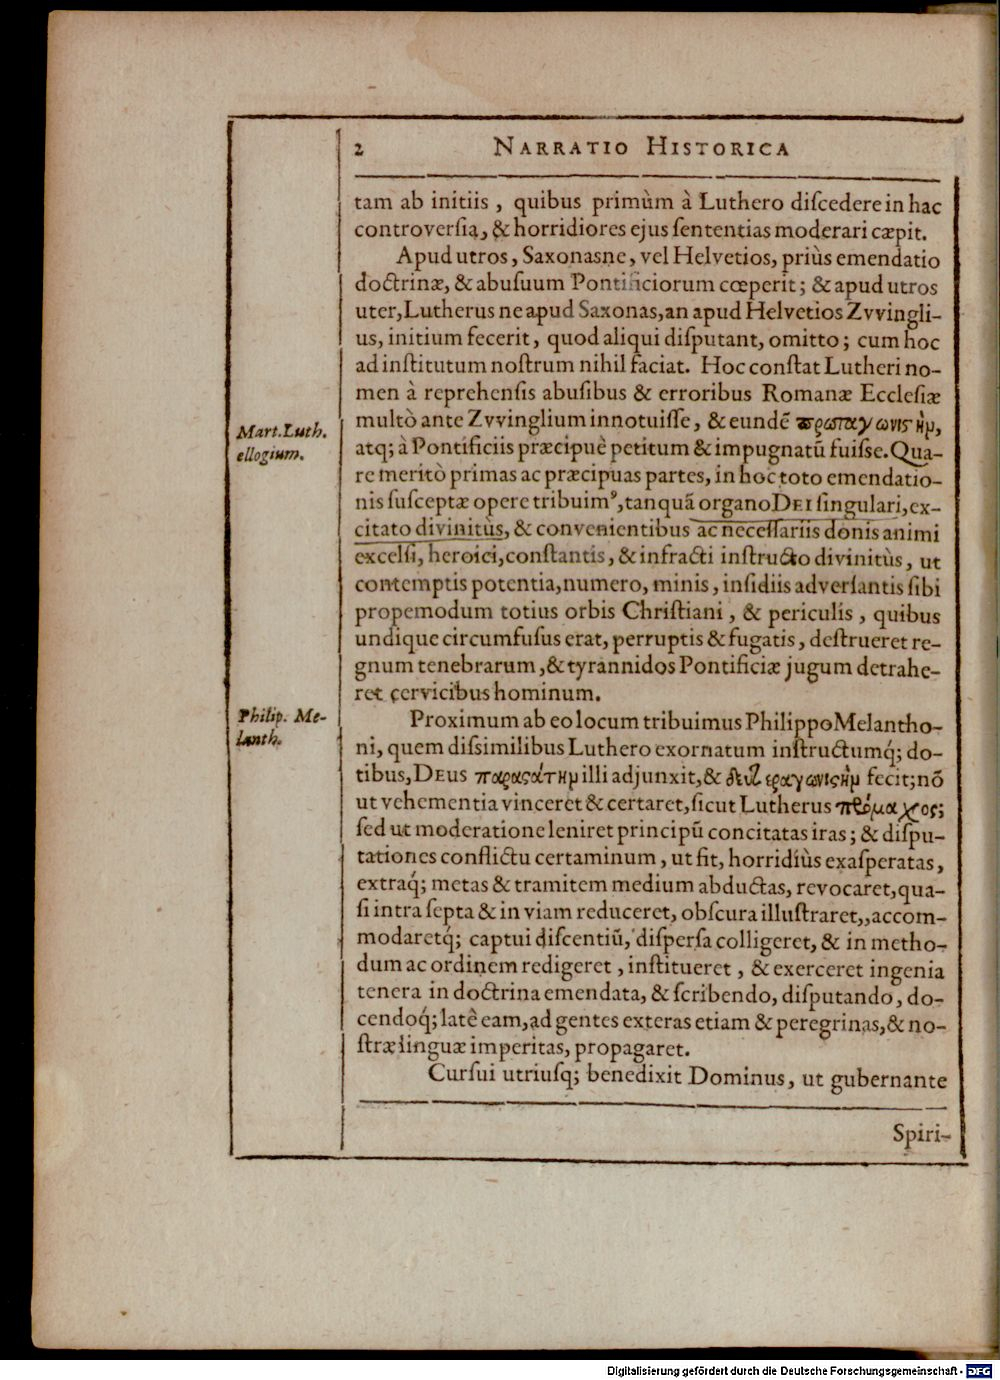 2 NARRATIO HISTORICA
tam ab initiis, quibus primùm à Luthero diſcedere in hac
controverſia, & horridiores ejus ſententias moderari cæpit.
Apud utros, Saxonasne, vel Helvetios, priùs emendatio
doctrinæ, & abuſuum Pontificiorum cœperit; & apud utros
uter, Lutherus ne apud Saxonas, an apud Helvetios Zvvingli-
us, initium fecerit, quod aliqui diſputant, omitto; cum hoc
ad inſtitutum noſtrum nihil faciat. Hoc conſtat Lutheri no-
men à reprehenſis abuſibus & erroribus Romanæ Eccleſiæ
Mart. Luth.
ellogium.
multò ante Zvvinglium innotuiſſe, & eundẽ πρωταγωνιςὴμ,
atq; à Pontificiis præcipuè petitum & impugnatũ fuiſse. Qua-
re meritò primas ac præcipuas partes, in hoc toto emendatio-
nis ſuſceptæ opere tribuimꝰ, tanquã organo DEI ſingulari, ex-
citato divinitùs, & convenientibus ac neceſſariis donis animi
excelſi, heroici, conſtantis, & infracti inſtructo divinitùs, ut
contemptis potentia, numero, minis, inſidiis adverſantis ſibi
propemodum totius orbis Chriſtiani, & periculis, quibus
undique circumfuſus erat, perruptis & fugatis, deſtrueret re-
gnum tenebrarum, & tyrannidos Pontificiæ jugum detrahe-
ret cervicibus hominum.
Philip. Me-
lanth.
Proximum ab eo locum tribuimus Philippo Melantho-
ni, quem diſsimilibus Luthero exornatum inſtructumq́; do-
tibus, DEUS παραςάτημ illi adjunxit, & δευτεραγωνιςὴμ fecit; nõ
ut vehementia vinceret & certaret, ſicut Lutherus πρόμαχος;
ſed ut moderatione leniret principũ concitatas iras; & diſpu-
tationes conflictu certaminum, ut fit, horridiùs exaſperatas,
extraq́; metas & tramitem medium abductas, revocaret, qua-
ſi intra ſepta & in viam reduceret, obſcura illuſtraret,, accom-
modaretq́; captui diſcentiũ, diſperſa colligeret, & in metho-
dum ac ordinem redigeret, inſtitueret, & exerceret ingenia
tenera in doctrina emendata, & ſcribendo, diſputando, do-
cendoq́; latè eam, ad gentes exteras etiam & peregrinas, & no-
ſtræ linguæ imperitas, propagaret.
Curſui utriuſq; benedixit Dominus, ut gubernante
Spiri-
Digitalisierung gefördert durch die Deutsche Forschungsgemeinschaft - DFG